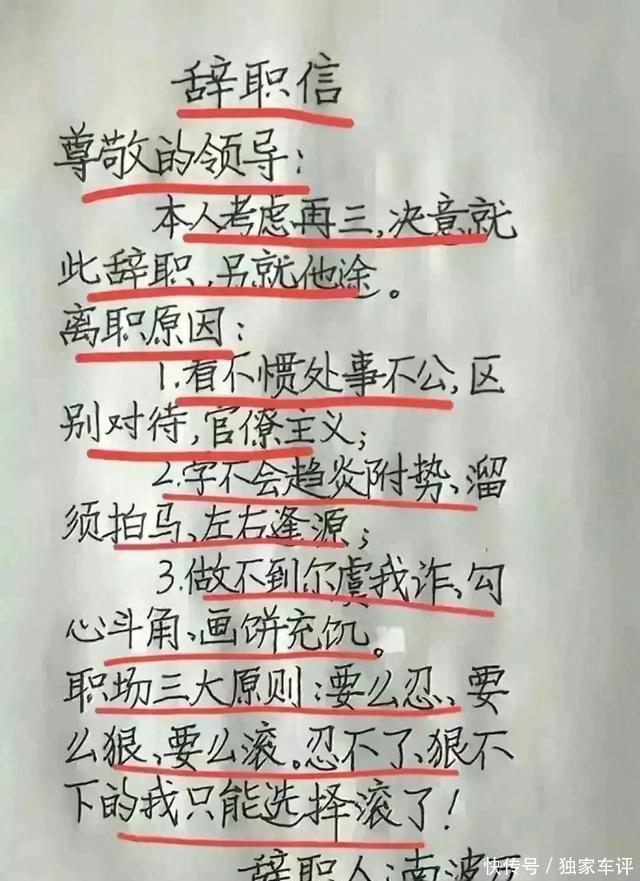 辞职信
尊敬的领导:
本人考虑再三,决意就
此辞职,另就他途。
离职原因:
1.看不惯处事不公,区
别对待,官僚主义;
2.学不会趋炎附势、溜
须拍马、左右逢源;
3.做不到尔虞我诈、勾
心斗角、画饼充饥。
职场三大原则:要么忍、要
么狠、要么滚。忍不了、狠不
下的我只能选择滚了!
辞职人:南波
快传号/独家车评